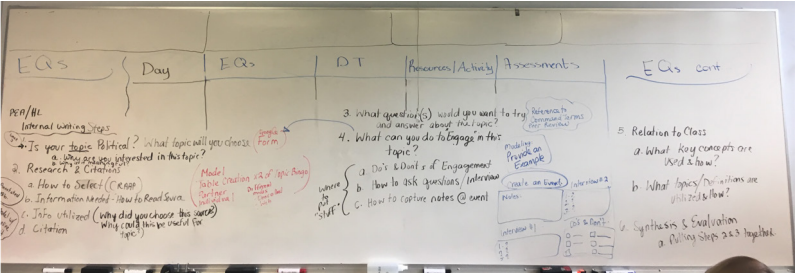 EQs
Day
EQs
DT
Resources/Activity
Assessments
EQs cont
PEA/HL
Internal Writing Steps
Is your topic Political? What topic will you choose
a. Why are you interested in this topic?
2. Research & Citations
a. How to Select (CRAAP
b. Information Needed - How to Read Source
c. Info Utilized (Why did you choose this source)
Why could this be useful for
topic?
d. Citation
Google
Form
Model
Table Creation
Topic
Partner
Individual
3. What question(s) would you want to try
and answer about the topic?
4. What can you do to "Engage" in this
topic?
where
to
put
"stuff"
a. Do's & Dont's of Engagement
b. How to ask questions / Interview
c. How to capture notes @ event
Reference to
Command Terms
Modeling
Provide an
Example
Create an Event
Notes:
Interview #2
Interview #1
Do's & Don't
5. Relation to Class
a. What key concepts are
used & how?
b. What topics/Definitions are
utilized & how?
6. Synthesis & Evaluation
a. Pulling Steps 2 & 3 together